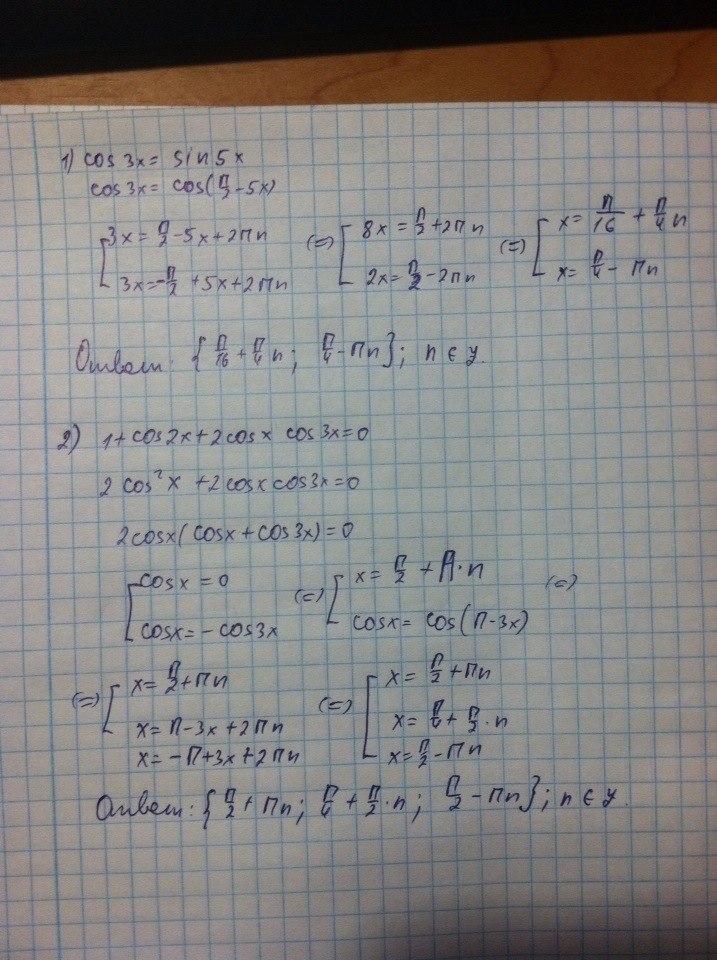 1) cos 3x = sin 5x
cos 3x = cos(π/2 - 5x)
[ 3x = π/2 - 5x + 2πn (=) [ 8x = π/2 + 2πn (=) [ x = π/16 + π/4 n
3x = -π/2 + 5x + 2πn 2x = π/2 - 2πn x = π/4 - πn
Ответ: { π/16 + π/4 n ; π/4 - πn } ; n ∈ y.
2) 1 + cos 2x + 2 cos x cos 3x = 0
2 cos² x + 2 cos x cos 3x = 0
2 cos x (cos x + cos 3x) = 0
[ cos x = 0 (=) [ x = π/2 + π · n (=)
cos x = - cos 3x cos x = cos(π - 3x)
(=) [ x = π/2 + πn (=) [ x = π/2 + πn
x = π - 3x + 2πn x = π/4 + π/2 · n
x = -π + 3x + 2πn x = π/2 - πn
Ответ: { π/2 + πn ; π/4 + π/2 · n ; π/2 - πn } ; n ∈ y.